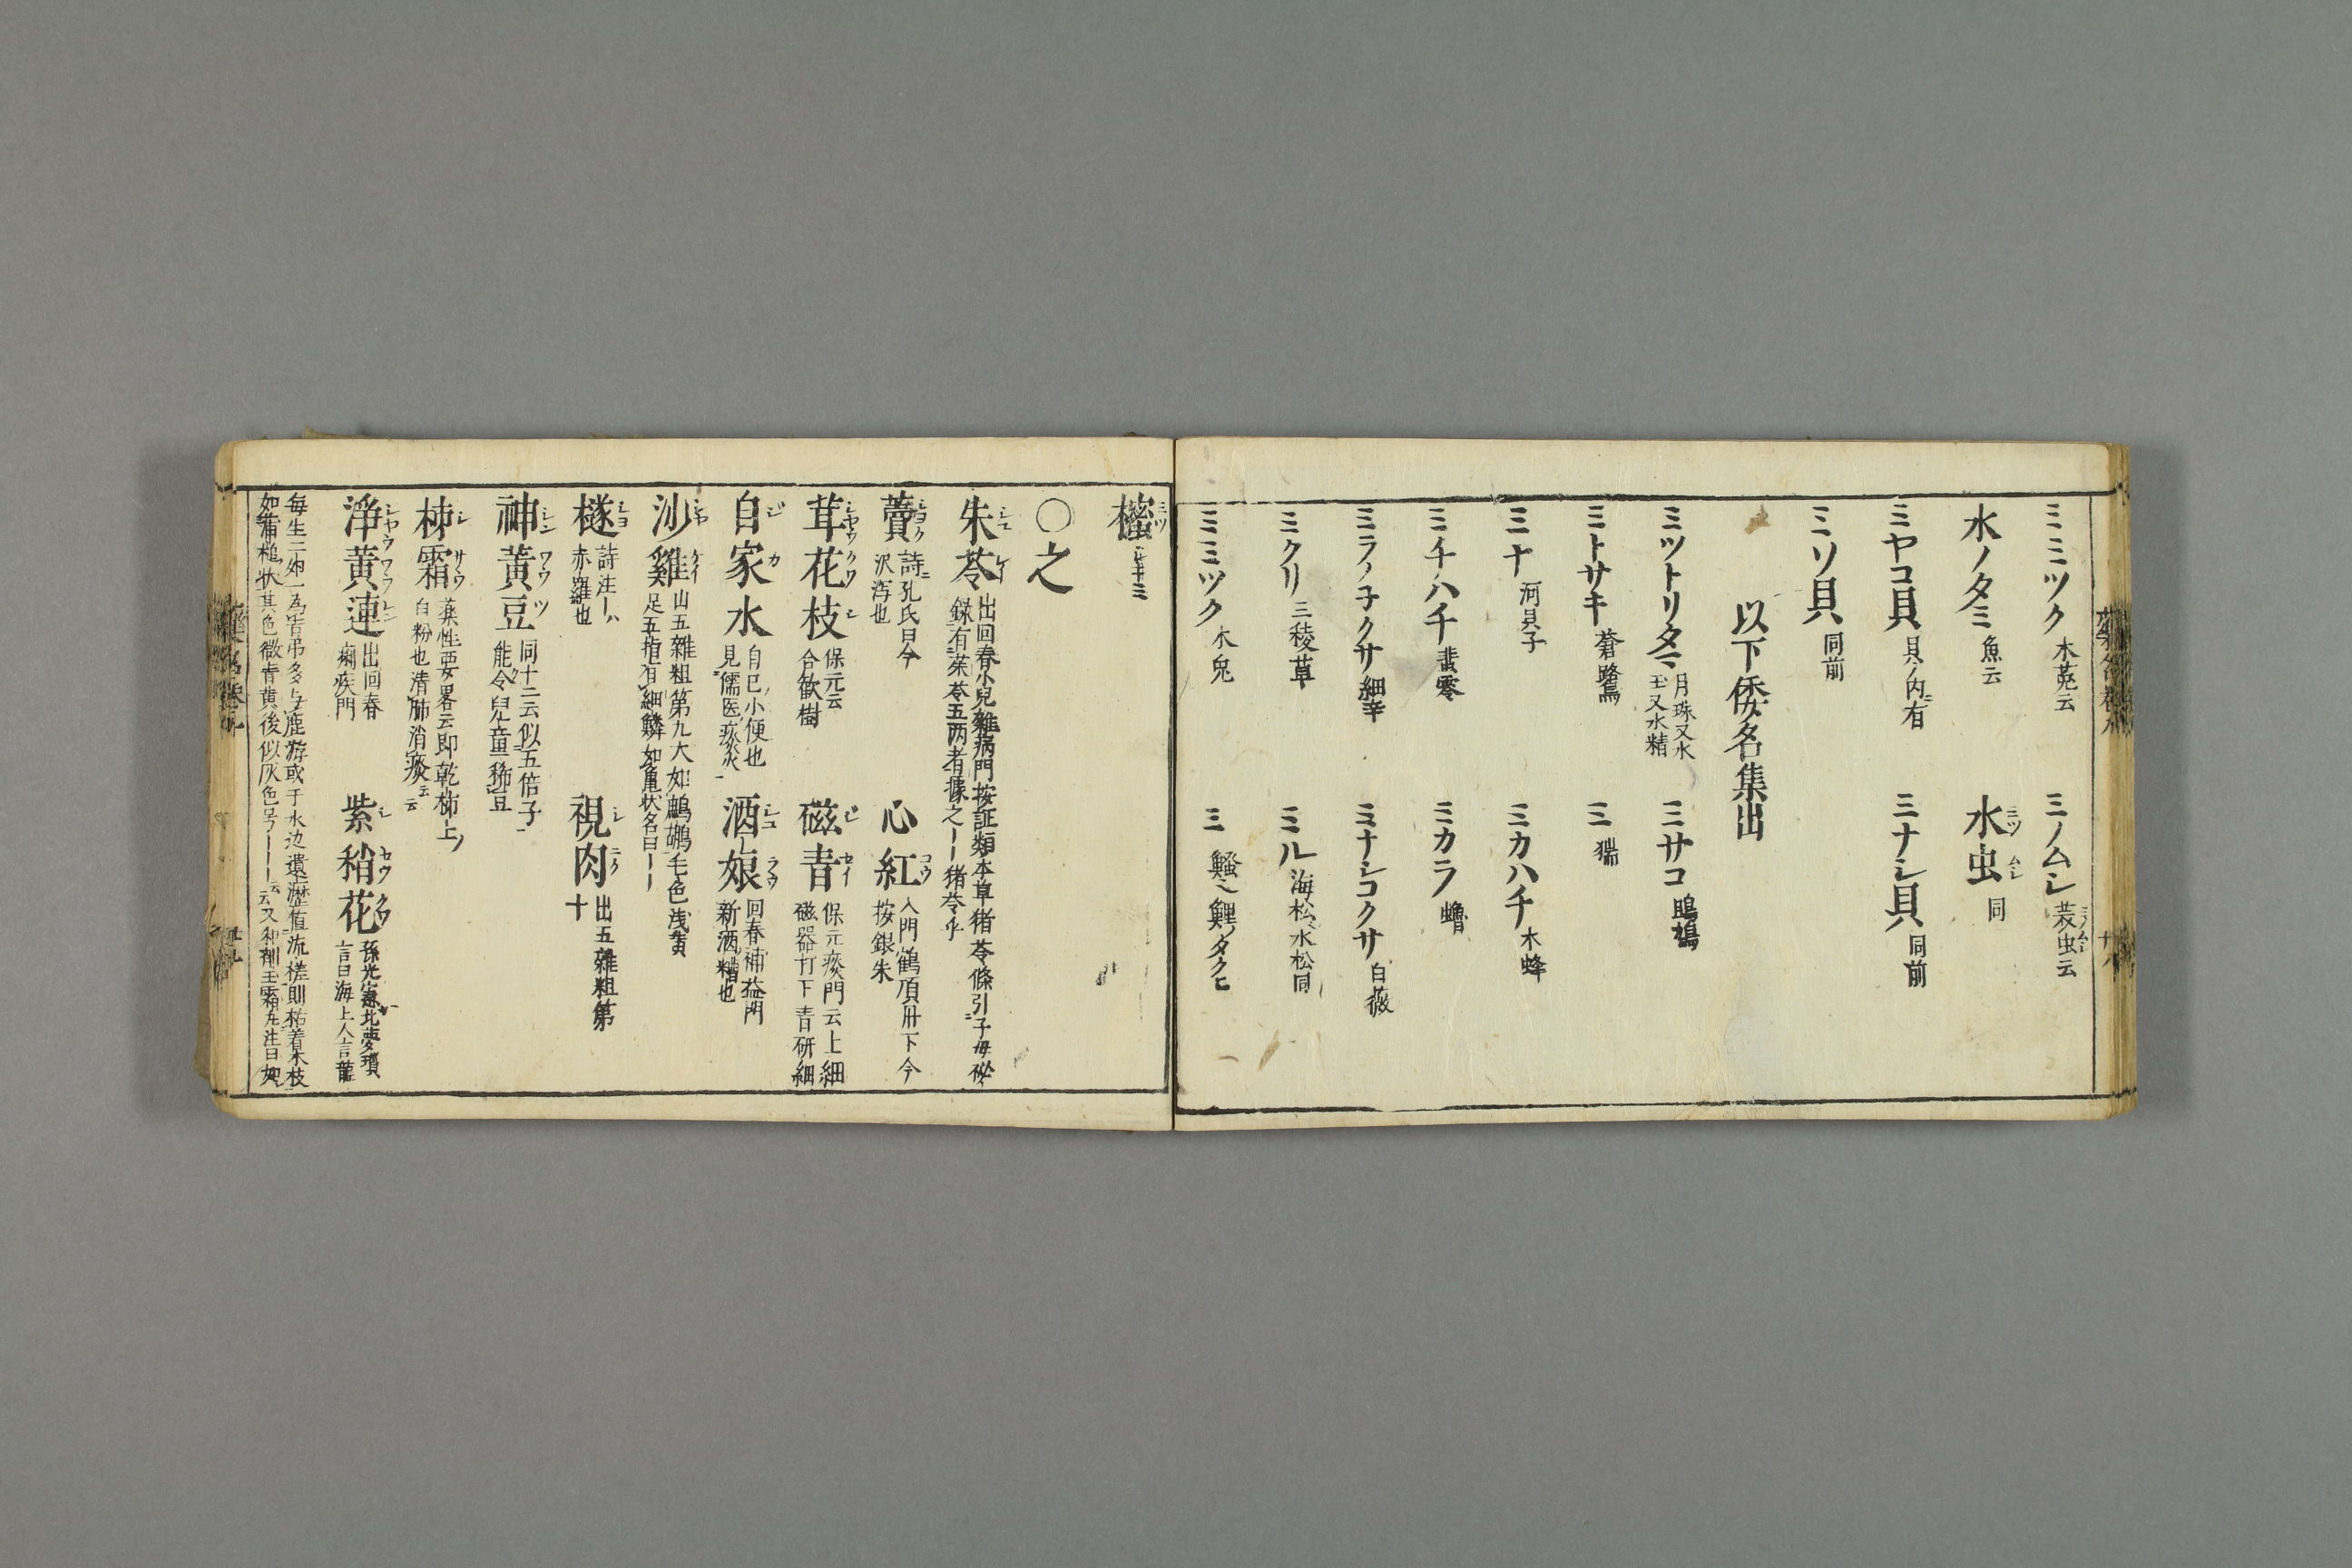 ミミツク 木菟云
ミノムシ 蓑虫云
水ノタミ 魚云
水虫 同
ミヤコ貝 貝ノ内ニ有
ミナシ貝 同前
ミソ貝 同前
以下倭名集出
ミツトリタマ 月珠又水
玉又水精
ミサコ 鵰鳩
ミトサキ 蒼鷺
ミ 猯
ミナ 河貝子
ミカハチ 木蜂
ミチハチ 蜚零
ミカラ 蠐
ミラノ子クサ 細辛
ミナシコクサ 白薇
ミクリ 三稜草
ミル 海松、水松同
ミミツク 木兎
ミ 鱃 鯉ノタクヒ
樒
○之
朱苓 出回春小兒雜病門按証類本草猪苓條引子母秘
録有茱苓五两者據之——猪苓乎
藚 詩孔氏曰今
沢泻也
心紅 入門鶴頂丹下今
按銀朱
茸花枝 保元云
合歓樹
磁青 保元痰門云上細
磁器打下青研細
自家水 自已小便也
見儒医痰火
酒娘 回春補益門
新酒糟也
沙雞 山五雜粗第九大如鷓鴣毛色浅黄
足五指有細鱗如亀状名曰——
檖 詩注一ハ
赤羅也
視肉 出五雜粗第
十
神黄豆 同十二云似五倍子
能令兒童稀豆
柿霜 薬性要畧云即乾柿上ノ
白粉也清肺消痰云云
淨黄連 出回春
痢疾門
紫稍花 孫光憲北夢瑣
言曰海上人言龍
每生二卵一為吉弔多与鹿游或于水边遺瀝值流槎則粘着木枝
如蒲槌状其色微青黄後似灰色号———云云又